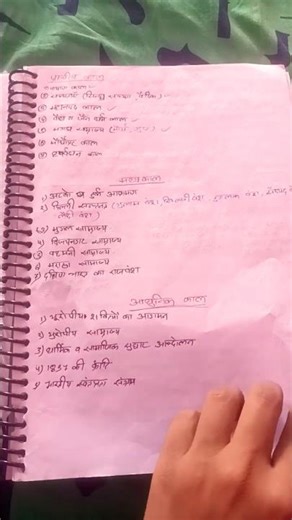 प्राचीन काल
काल
② सभ्यता (सिन्धु सभ्यता, वैदिक)
③ महाजनपद काल
④ बौद्ध व जैन धर्म काल
⑤ मगध साम्राज्य
⑥ मौर्योत्तर काल
काल
मध्यकाल
1) अरबो व तुर्की आक्रमण
2) दिल्ली सल्तनत (गुलाम वंश, खिलजी वंश, तुगलक वंश, सैय्यद
लोदी वंश)
3) मुगल साम्राज्य
4) विजयनगर साम्राज्य
5) बहमनी साम्राज्य
6) मराठा साम्राज्य
7) दक्षिण भारत का राजवंश
आधुनिक काल
1) यूरोपीय शक्तियों का आगमन
2) यूरोपीय साम्राज्य
3) धार्मिक व सामाजिक सुधार आन्दोलन
4) 1857 की क्रांति
5) भारतीय स्वतंत्रता संग्राम